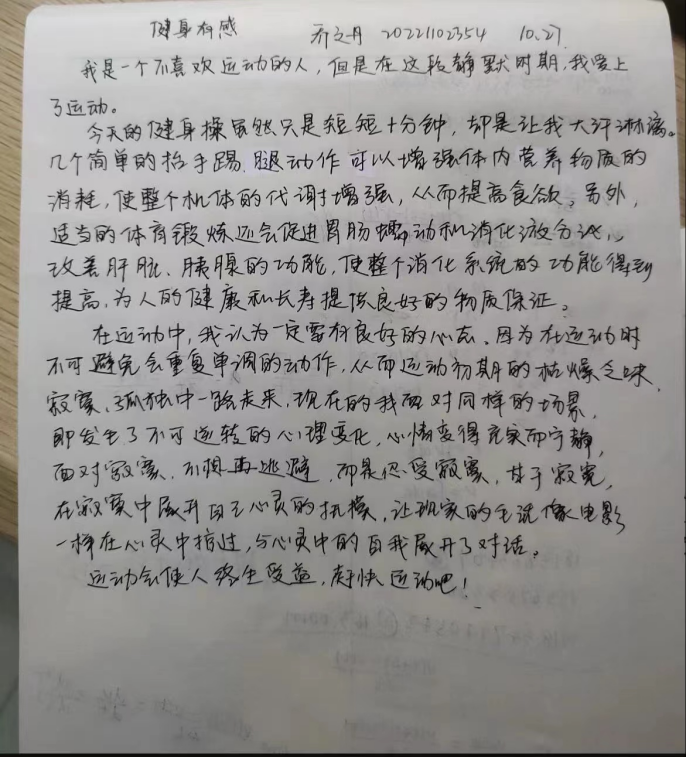 健身有感 乔文丹 20221102354 10.27
我是一个不喜欢运动的人，但是在这段静默时期，我爱上
了运动。
今天的健身操虽然只是短短十分钟，却是让我大汗淋漓。
几个简单的抬手踢腿动作可以增强体内营养物质的
消耗，使整个机体的代谢增强，从而提高食欲。另外，
适当的体育锻炼还会促进胃肠蠕动和消化液分泌，
改善肝脏、胰腺的功能，使整个消化系统的功能得到
提高，为人的健康和长寿提供良好的物质保证。
在运动中，我认为一定要有良好的心态。因为在运动时
不可避免会重复单调的动作，从而运动初期的枯燥乏味，
寂寞、孤独中一路走来，现在的我面对同样的场景，
即发生了不可逆转的心理变化，心情变得充实而宁静，
面对寂寞，不想再逃避，而是忍受寂寞，甘于寂寞，
在寂寞中展开自己心灵的，让现实的生活像电影
一样在心灵中掠过，与心灵中的自我展开了对话。
运动会使人终生受益，赶快运动吧！